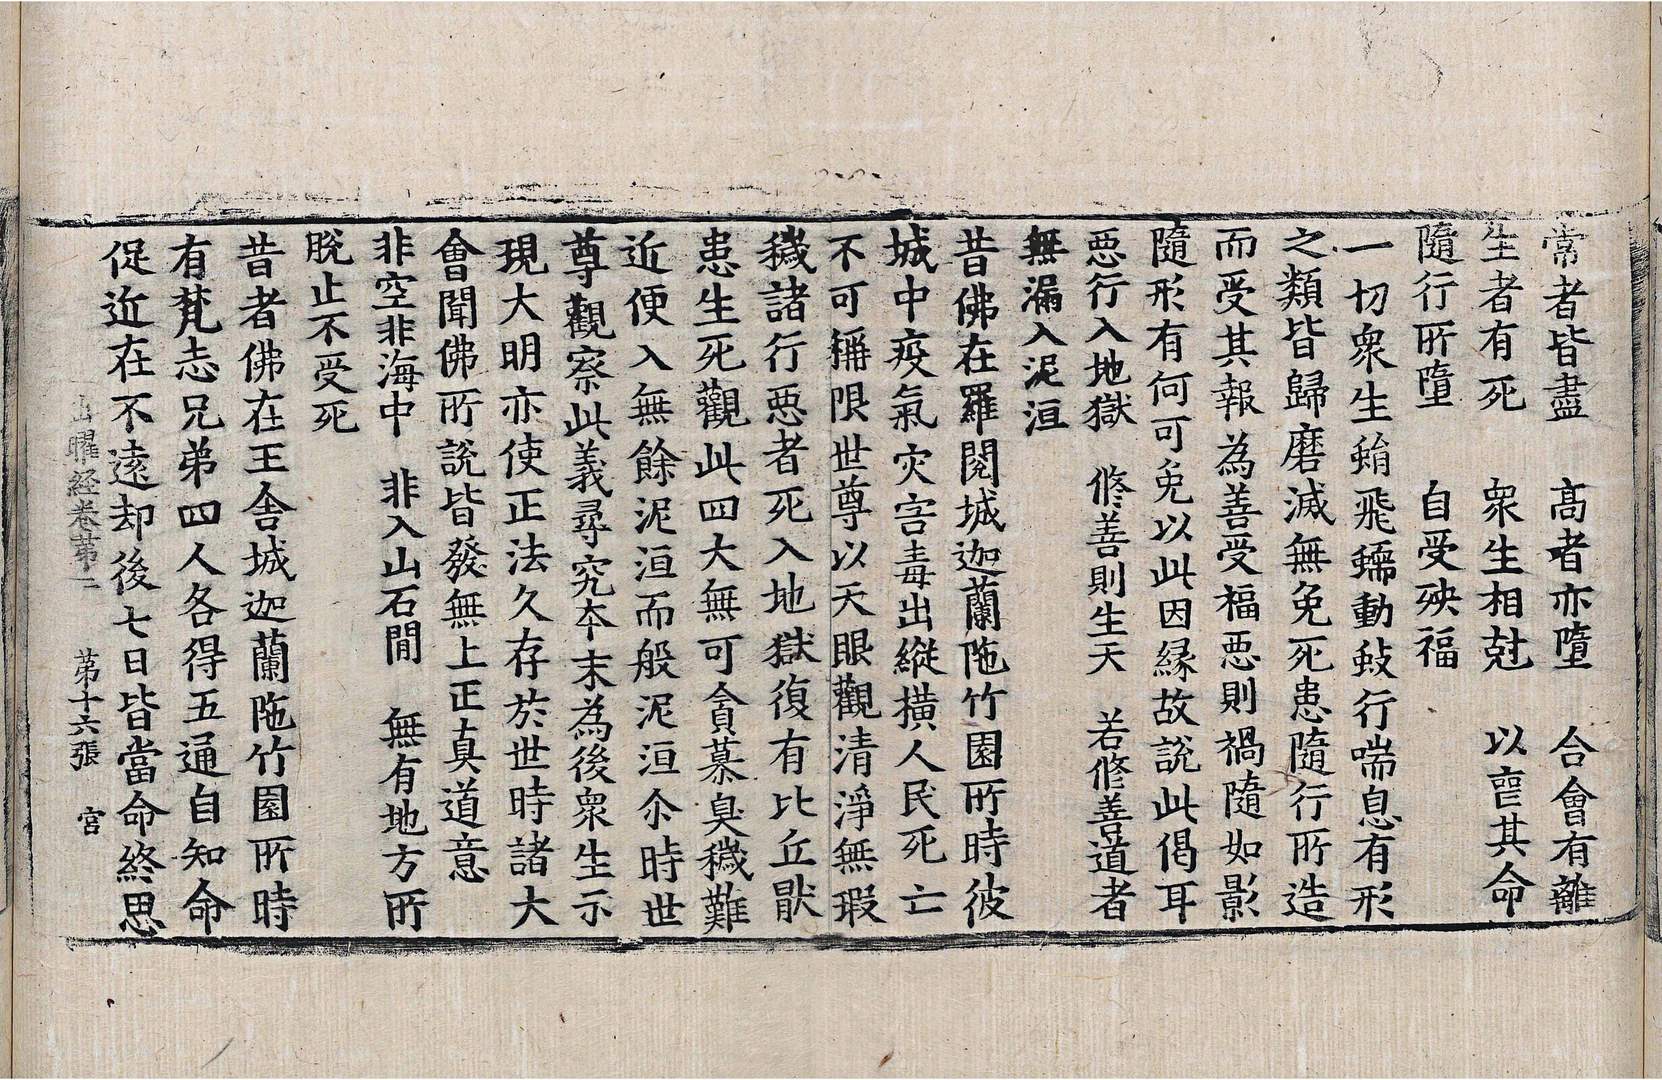 常者皆盡　高者亦墮　合會有離
生者有死　衆生相尅　以喪其命
隨行所墮　自受殃福
一切衆生蜎飛蠕動蚑行喘息有形
之類皆歸磨滅無免死患隨行所造
而受其報為善受福惡則禍隨如影
隨形有何可免以此因緣故說此偈耳
惡行入地獄　修善則生天　若修善道者
無漏入泥洹
昔佛在羅閱城迦蘭陁竹園所時彼
城中疫氣灾害毒出縱橫人民死亡
不可稱限世尊以天眼觀清淨無瑕
穢諸行惡者死入地獄復有比丘猒
患生死觀此四大無可貪慕臭穢難
近便入無餘泥洹而般泥洹尒時世
尊觀察此義尋究本末為後衆生示
現大明亦使正法久存於世時諸大
會聞佛所說皆發無上正真道意
非空非海中　非入山石間　無有地方所
脫止不受死
昔者佛在王舍城迦蘭陁竹園所時
有梵志兄弟四人各得五通自知命
促近在不遠却後七日皆當命終思
出曜經卷第二　第十六張　宮